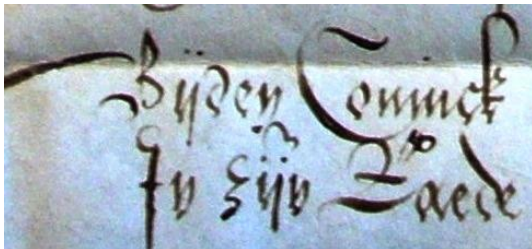 Bijden Coninck
In zijn Raede